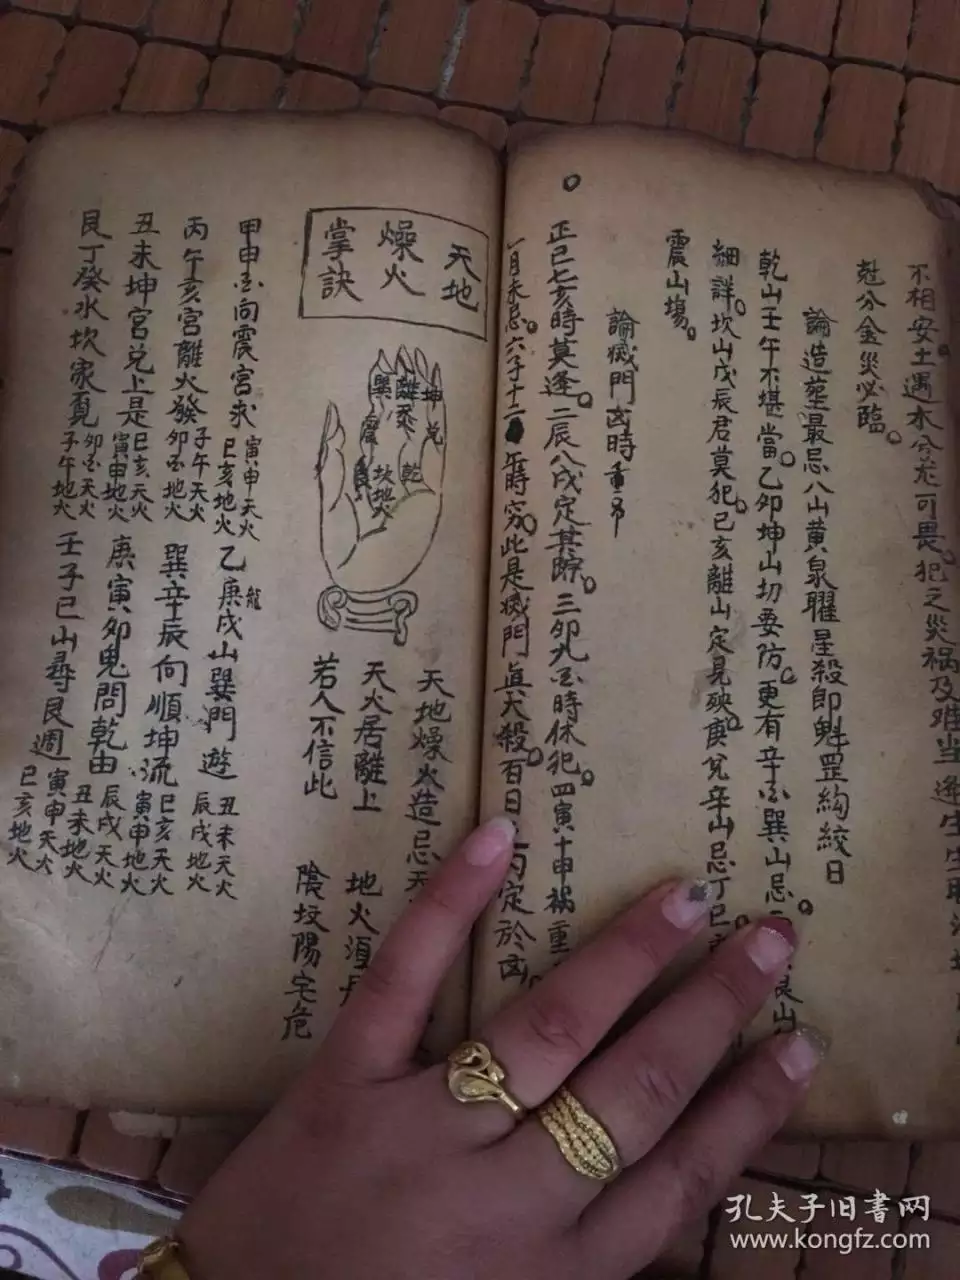 不相安土遇木兮龙可畏犯之災祸及难当逢生
尅分金災必臨
論造塟最忌八山黄泉曜星殺即魁罡絢絞日
乾山壬午不堪當乙卯坤山切要防更有辛酉巽山忌
細詳坎山戊辰君莫犯已亥離山定見殃庚兌辛山忌丁巳
震山塲
論滅門凶時重
正巳七亥時莫逢二辰八戌定其踪三卯九酉時休犯四寅十申祸重
月未忌六子十二午時穷此是滅門眞大殺百日
定於凶
天地
燥火
掌訣
巽 離 坤
震 兌
乾
坎地火
天地燥火造忌天
天火居離上 地火須
若人不信此 陰坟陽宅危
甲申酉向震宮求 寅申天火 巳亥地火 乙庚戌山巽門遊 丑未天火 辰戌地火
龍
丙午亥宮離火發 子午天火 卯酉地火 巽辛辰向順坤流 巳亥天火 寅申地火
丑未坤宮兌上是 巳亥天火 寅申地火 庚寅卯鬼問乾由 辰戌天火 丑未地火
艮丁癸水坎家覔 卯酉天火 子午地火 壬子巳山尋艮週 寅申天火 巳亥地火
孔夫子旧书网
www.kongfz.com